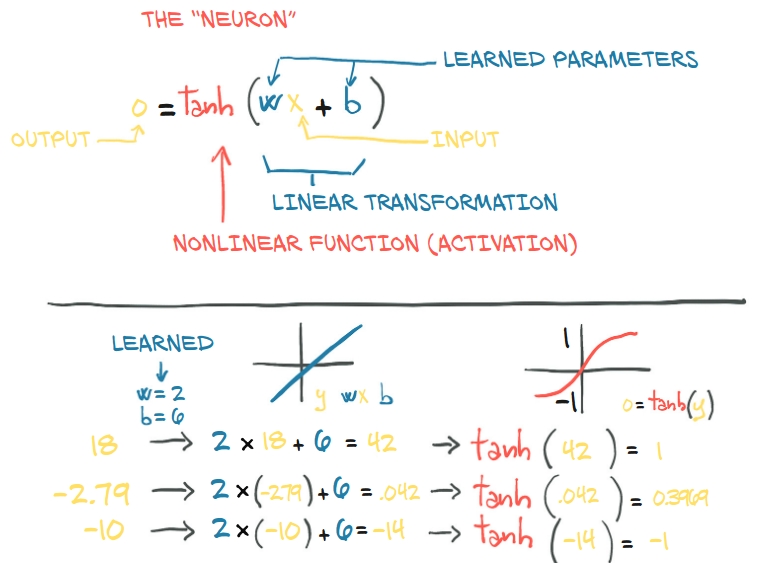 THE "NEURON"
LEARNED PARAMETERS
o = tanh (wx + b)
OUTPUT
INPUT
LINEAR TRANSFORMATION
NONLINEAR FUNCTION (ACTIVATION)
LEARNED
w=2
b=6
y wx b
1
-1
o=tanh(y)
18 → 2 × 18 + 6 = 42 → tanh (42) = 1
-2.79 → 2 × (-2.79) + 6 = .042 → tanh (.042) = 0.3969
-10 → 2 × (-10) + 6 = -14 → tanh (-14) = -1